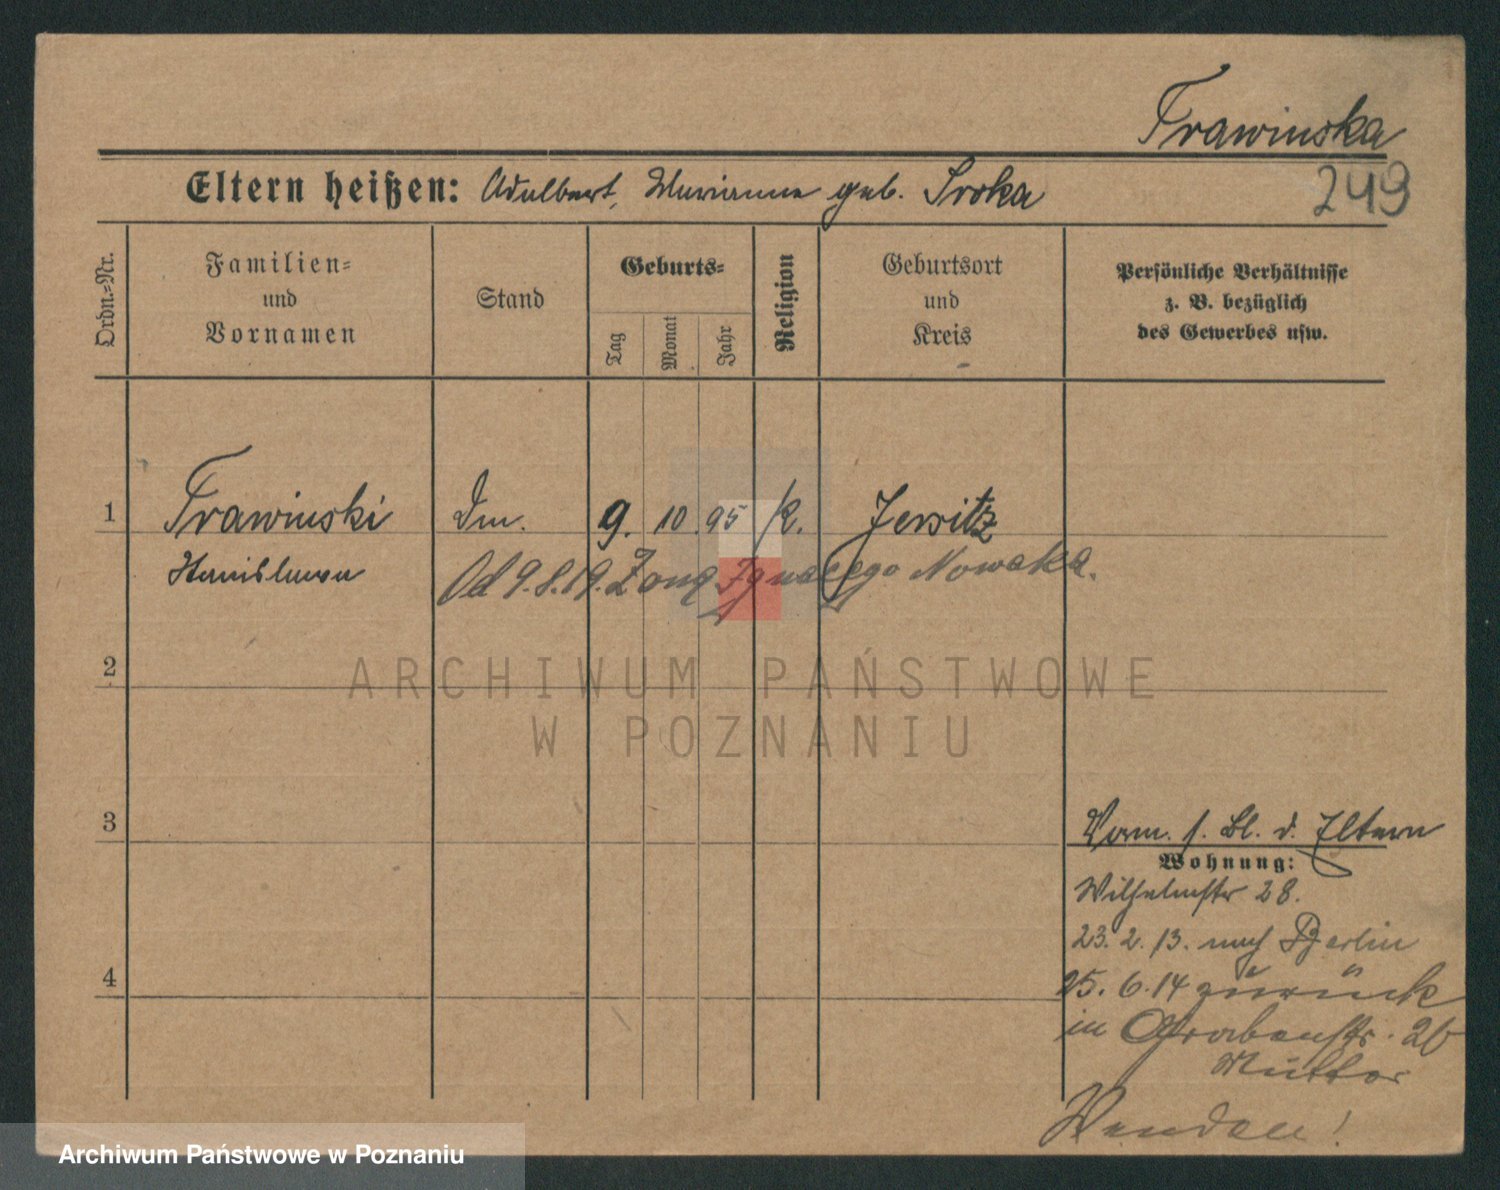 Trawinska
249
Eltern heißen: Adalbert, Marianna geb. Sroka
Ordn.=Nr.
Familien=
und
Vornamen
Stand
Geburts=
Tag
Monat
Jahr
Religion
Geburtsort
und
Kreis
Persönliche Verhältnisse
z. B. bezüglich
des Gewerbes usw.
1 Trawinski 9. 10. 95 K. Jersitz
Stanislawa Od 9.8.19. Żona Ignacego Nowaka.
2
3
4
Vorm. s. Bl. d. Eltern
Wohnung:
Wilhelmstr 28.
23. 2. 13. nach Berlin
25. 6. 14 zurück
in Grabenstr. 26
Mutter
Wenden!
ARCHIWUM PAŃSTWOWE
W POZNANIU
Archiwum Państwowe w Poznaniu